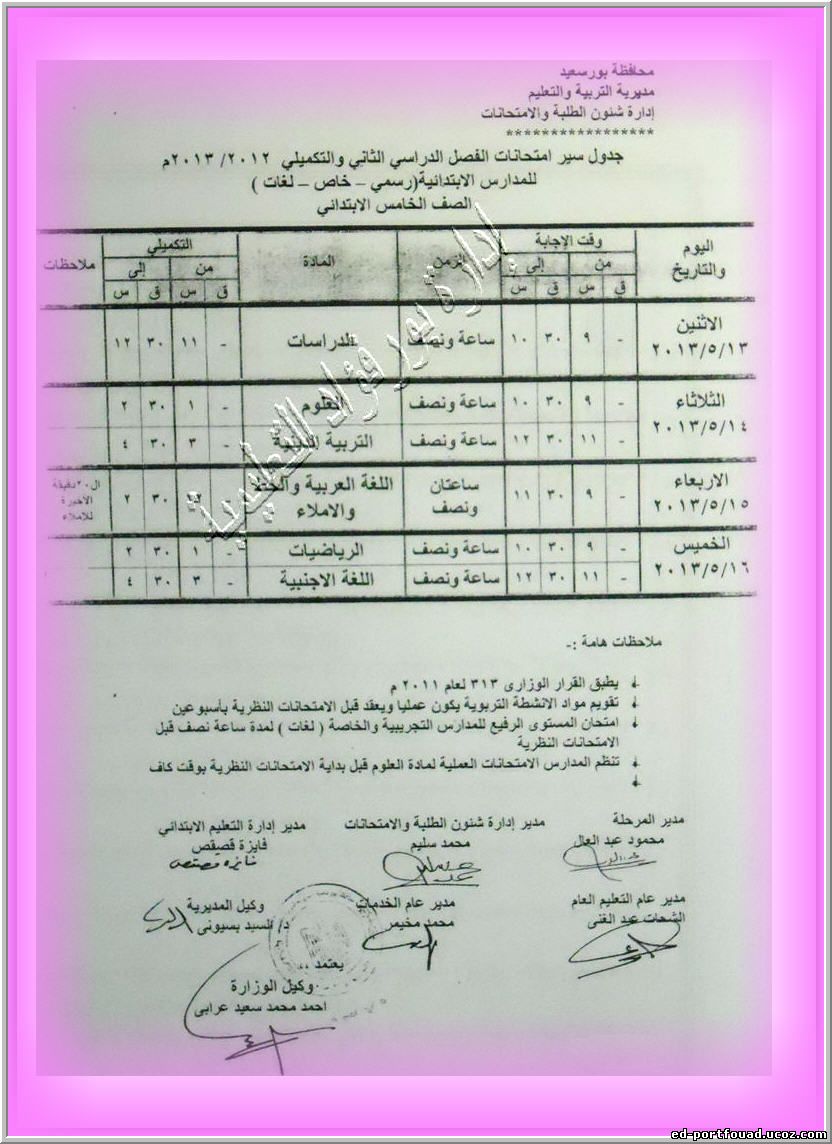 محافظة بورسعيد
مديرية التربية والتعليم
إدارة شئون الطلبة والامتحانات
*****************
جدول سير امتحانات الفصل الدراسي الثاني والتكميلي ٢٠١٢/ ٢٠١٣م
للمدارس الابتدائية(رسمي – خاص – لغات )
الصف الخامس الابتدائي
اليوم والتاريخ وقت الإجابة الزمن المادة التكميلي ملاحظات
من إلى من إلى
ق س ق س ق س ق س
الاثنين ٢٠١٣/٥/١٣ - ٩ ٣٠ ١٠ ساعة ونصف الدراسات - ١١ ٣٠ ١٢
الثلاثاء ٢٠١٣/٥/١٤ - ٩ ٣٠ ١٠ ساعة ونصف العلوم - ١ ٣٠ ٢
- ١١ ٣٠ ١٢ ساعة ونصف التربية الدينية - ٣ ٣٠ ٤
الاربعاء ٢٠١٣/٥/١٥ - ٩ ٣٠ ١١ ساعتان ونصف اللغة العربية والخط والاملاء - ٣٠ ٢ ال٢٠دقيقة الاخيرة للاملاء
الخميس ٢٠١٣/٥/١٦ - ٩ ٣٠ ١٠ ساعة ونصف الرياضيات - ١ ٣٠ ٢
- ١١ ٣٠ ١٢ ساعة ونصف اللغة الاجنبية - ٣ ٣٠ ٤
إدارة بور فؤاد التعليمية
ملاحظات هامة :-
يطبق القرار الوزارى ٣١٣ لعام ٢٠١١ م
تقويم مواد الانشطة التربوية يكون عمليا ويعقد قبل الامتحانات النظرية بأسبوعين
امتحان المستوى الرفيع للمدارس التجريبية والخاصة ( لغات ) لمدة ساعة نصف قبل
الامتحانات النظرية
تنظم المدارس الامتحانات العملية لمادة العلوم قبل بداية الامتحانات النظرية بوقت كاف
مدير المرحلة مدير إدارة شئون الطلبة والامتحانات مدير إدارة التعليم الابتدائي
محمود عبد العال محمد سليم فايزة قصقص
فايزة قصقص
مدير عام التعليم العام مدير عام الخدمات وكيل المديرية
الشحات عبد الغنى محمد مخيمر د/ السيد بسيونى
يعتمد ,,
وكيل الوزارة
احمد محمد سعيد عرابى
ed-portfouad.ucoz.com